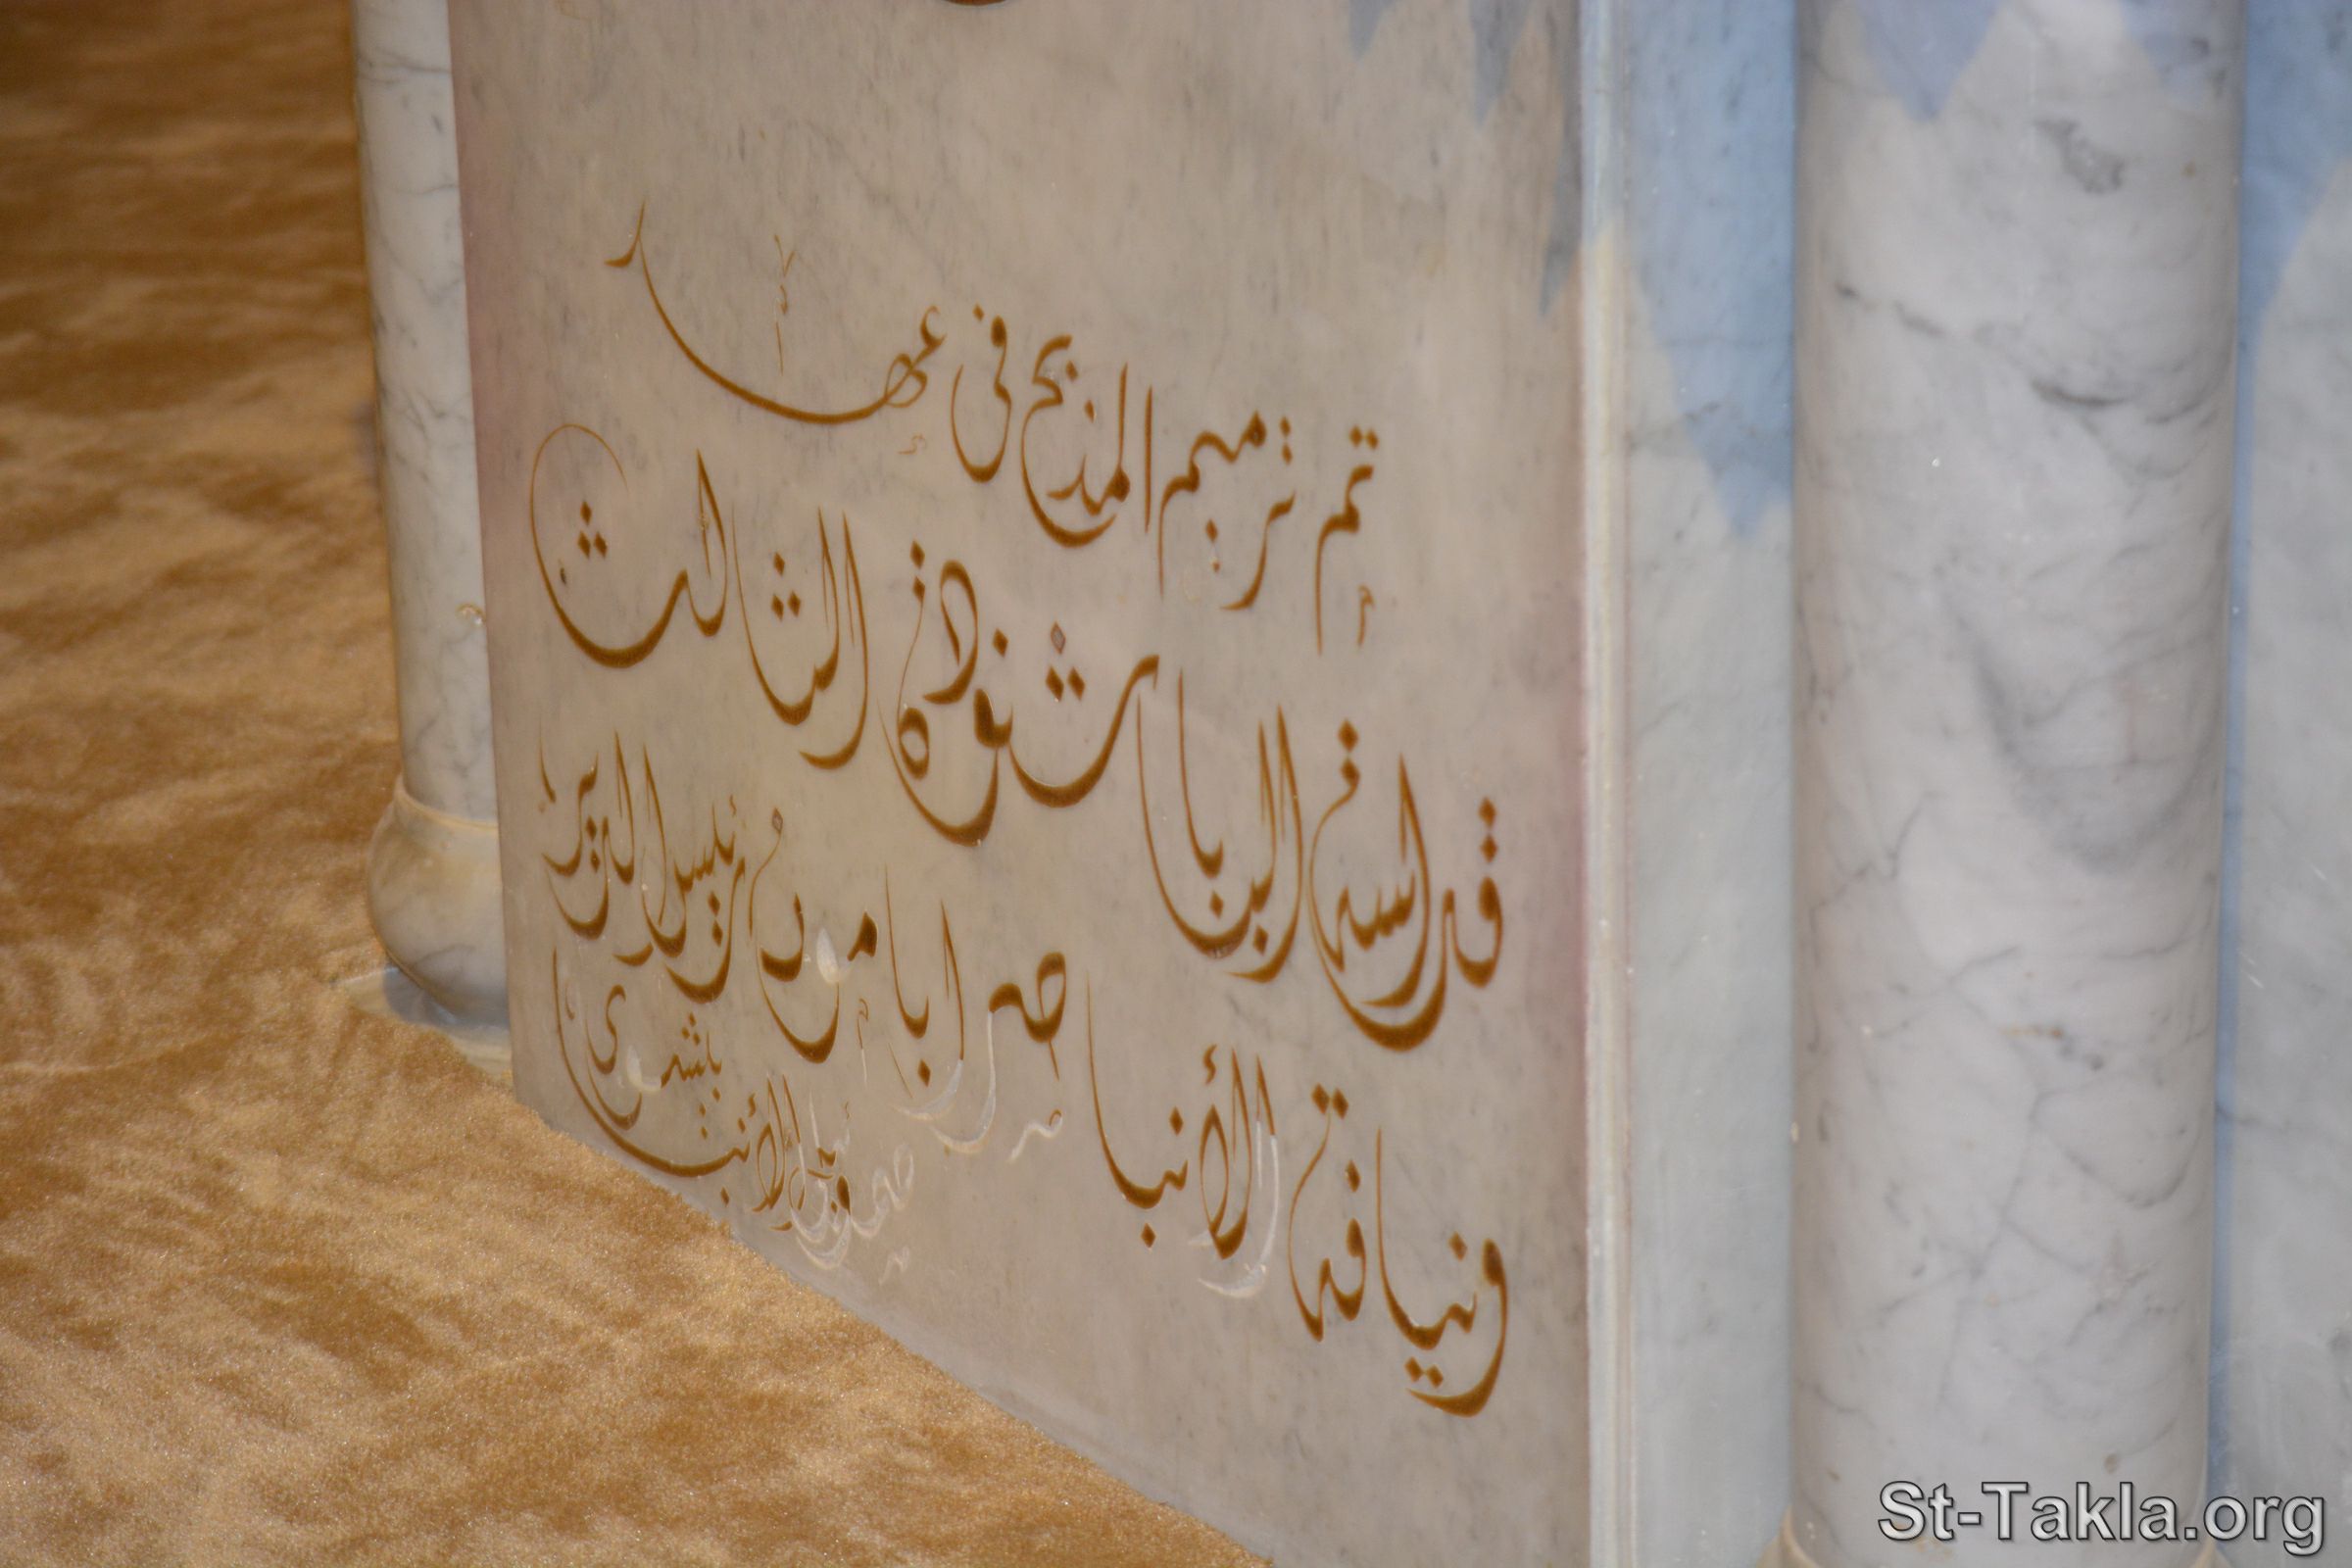 تم ترميم المذبح فى عهد
قداسة البابا شنودة الثالث
ونيافة الأنبا صرابامون رئيس الدير
الأنبا بيشوى
St-Takla.org